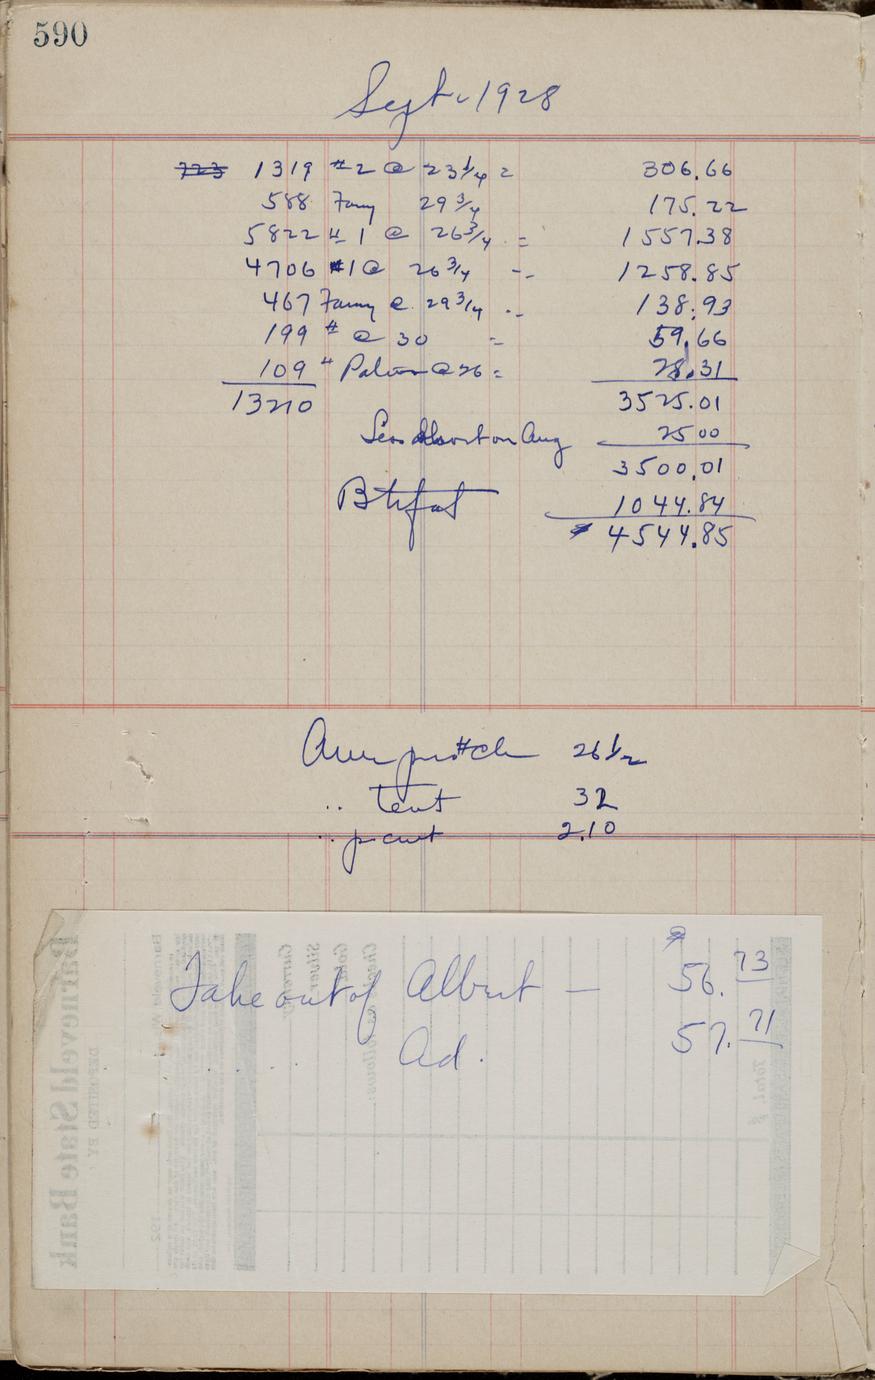 590
Sept. 1928
723 1319 #2 @ 23 1/4 = 306.66
588 Fancy 29 3/4 175.22
5822 # 1 @ 26 3/4 = 1557.38
4706 #1 @ 26 3/4 = 1258.85
467 Fancy @ 29 3/4 138.93
199 # @ 30 = 59.66
109 " @ 26 = 28.31
13210 3525.01
Less short on Aug 25 00
3500.01
Btrfat 1044.84
4544.85
# ch 26 1/2
.. test 32
.. p cwt 2.10
Take out of Albert — $ 56.73
. . . Ad. 57.71
Barneveld State Bank
DEPOSITED BY
Currency
Silver
Gold
Checks as follows:
Total $
192